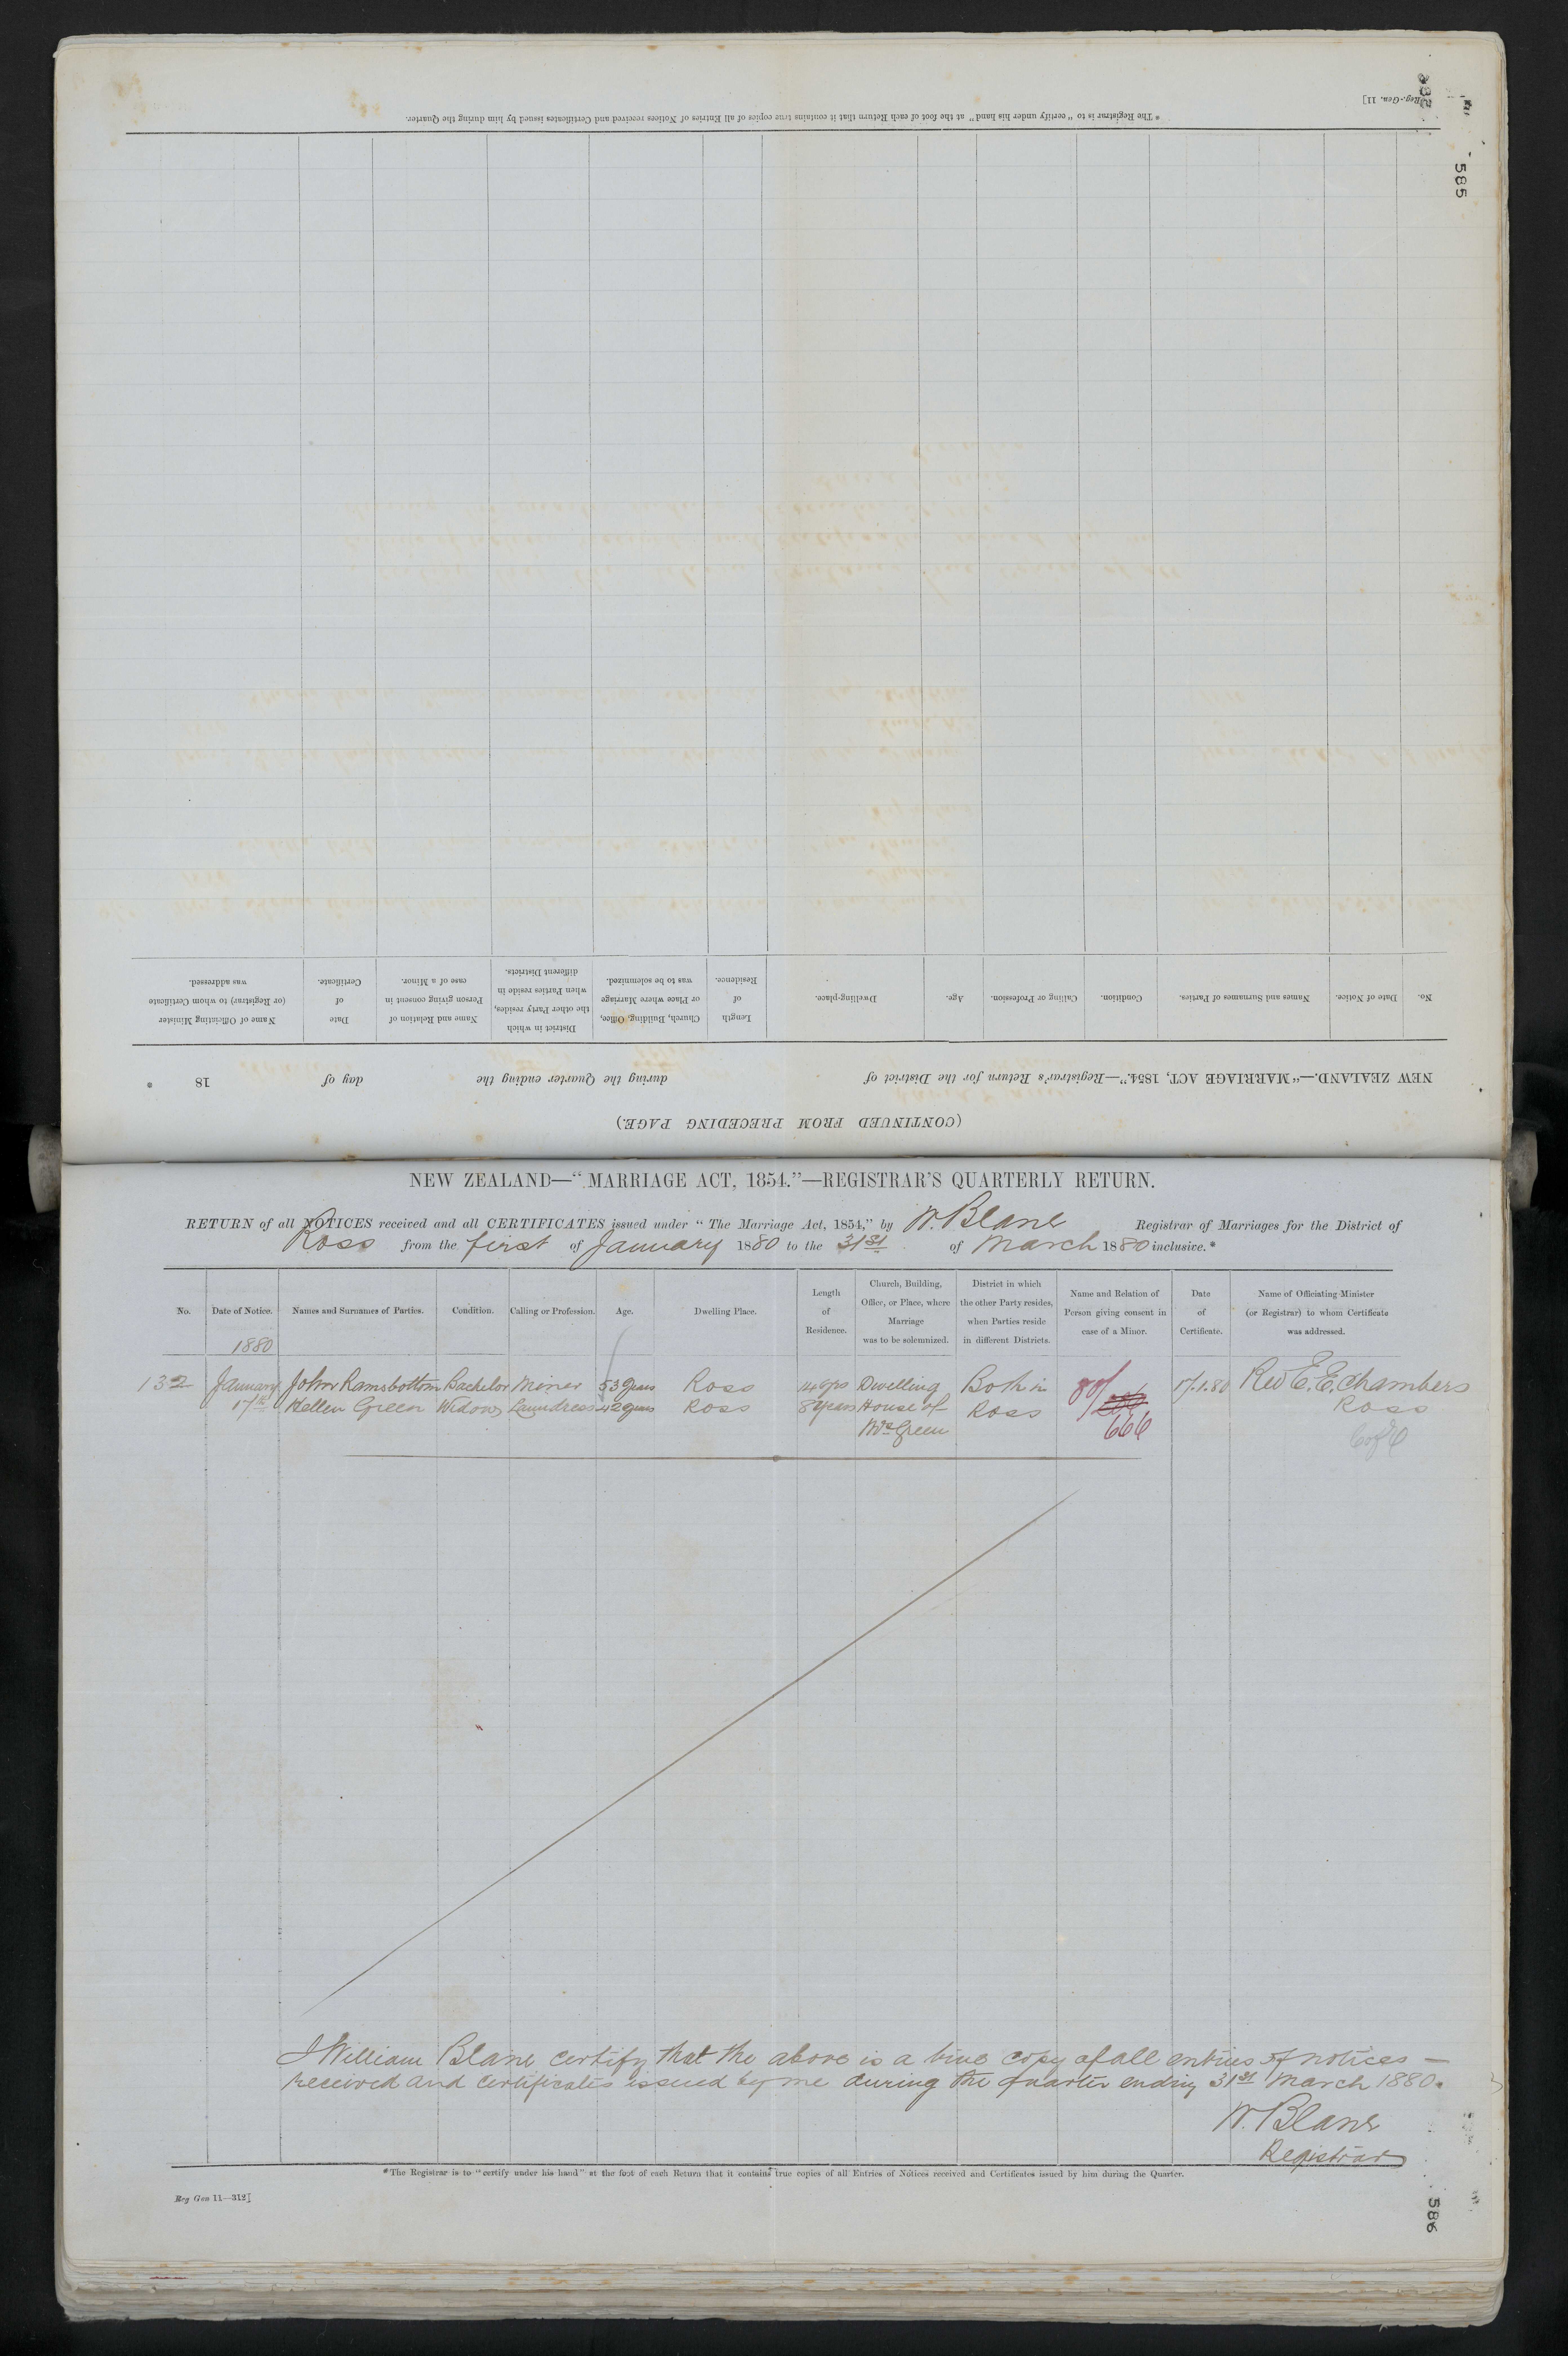 Reg.-Gen. 11]
585
* The Registrar is to "certify under his hand" at the foot of each Return that it contains true copies of all Entries of Notices received and Certificates issued by him during the Quarter.
(CONTINUED FROM PRECEDING PAGE.)
NEW ZEALAND.—"MARRIAGE ACT, 1854."—Registrar's Return for the District of during the Quarter ending the day of 18 .
No.
Date of Notice.
Names and Surnames of Parties.
Condition.
Calling or Profession.
Age.
Dwelling-place.
Length
of
Residence.
Church, Building, Office,
or Place where Marriage
was to be solemnized.
District in which
the other Party resides,
when Parties reside in
different Districts.
Name and Relation of
Person giving consent in
case of a Minor.
Date
of
Certificate.
Name of Officiating Minister
(or Registrar) to whom Certificate
was addressed.
NEW ZEALAND—"MARRIAGE ACT, 1854."—REGISTRAR'S QUARTERLY RETURN.
RETURN of all NOTICES received and all CERTIFICATES issued under "The Marriage Act, 1854," by W. Blane Registrar of Marriages for the District of
Ross from the first of January 1880 to the 31st of March 1880 inclusive.*
No.
Date of Notice.
Names and Surnames of Parties.
Condition.
Calling or Profession.
Age.
Dwelling Place.
Length
of
Residence.
Church, Building,
Office, or Place, where
Marriage
was to be solemnized.
District in which
the other Party resides,
when Parties reside
in different Districts.
Name and Relation of
Person giving consent in
case of a Minor.
Date
of
Certificate.
Name of Officiating Minister
(or Registrar) to whom Certificate
was addressed.
1880
132 January John Ramsbottom Bachelor Miner 53 years Ross 14 yrs Dwelling Both in 80/ 17.1.80 Rev E. E. Chambers
17th Hellen Green Widow Laundress 42 years Ross 8 years House of Ross 666 Ross
Mrs Green C of E
I William Blane certify that the above is a true copy of all entries of notices —
received and certificates issued by me during the quarter ending 31st March 1880.
W. Blane
Registrar
*The Registrar is to "certify under his hand" at the foot of each Return that it contains true copies of all Entries of Notices received and Certificates issued by him during the Quarter.
Reg Gen 11—312]
586